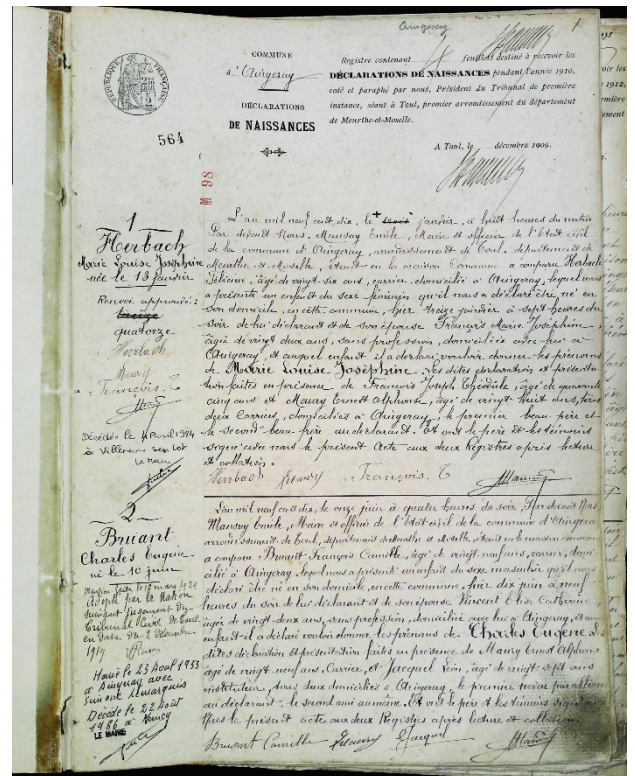 Aingeray
1
COMMUNE
d'Aingeray
DÉCLARATIONS
DE NAISSANCES
RÉPUBLIQUE FRANÇAISE
564
86
Registre contenant 4 feuillets destiné à recevoir les
DÉCLARATIONS DE NAISSANCES pendant l'année 1910,
coté et paraphé par nous, Président du Tribunal de première
instance, séant à Toul, premier arrondissement du département
de Meurthe-et-Moselle.
A Toul, le décembre 1909.
1
Herbach
Marie Louise Joséphine
née le 13 janvier
Renvoi approuvé :
treize
quatorze
Herrbach
Maury
François. T
Décédée le 4 Avril 1994
à Villeneuve sur Lot
Le Maire
L'an mil neuf cent dix, le janvier, à huit heures du matin
Par devant Nous, Mansuy Emile, Maire et officier de l'Etat civil
de la commune d'Aingeray, arrondissement de Toul, département de
Meurthe et Moselle, étant en la maison Commune a comparu Herbach
Félicien, âgé de vingt six ans, carrier, domicilié à Aingeray, lequel nous
a présenté un enfant du sexe féminin qu'il nous a déclaré être né en
son domicile, en cette commune, hier treize janvier à sept heures du
soir de lui déclarant et de son épouse François Marie Joséphine,
âgée de vingt deux ans, sans profession, domiciliée avec lui à
Aingeray, et auquel enfant il a déclaré vouloir donner les prénoms
de Marie Louise Joséphine. Les dites déclaration et présentation
faites en présence de François Joseph Théodule, âgé de quarante
cinq ans et Maury Ernest Alphonse, âgé de vingt huit ans, tous
deux Carriers, domiciliés à Aingeray, le premier beau père et
le second beau-frère au déclarant. Et ont le père et les témoins
signé avec nous le présent Acte aux deux Registres après lecture
et collation.
Herrbach Maury François. T Mansuy
2
Bruant
Charles Eugène
né le 10 juin
Adopté par la Nation
suivant jugement du
Tribunal Civil de Toul
en date du 2 Décembre
1919
Marié le 23 Août 1933
à Aingeray avec
Simone Lemarquis
Décédé le 22 Août
1986 à Nancy
LE MAIRE
L'an mil neuf cent dix, le onze juin à quatre heures du soir, Par devant Nous
Mansuy Emile, Maire et officier de l'Etat civil de la commune d'Aingeray
arrondissement de Toul, département de Meurthe et Moselle, étant en la maison commune
a comparu Bruant François Camille, âgé de vingt neuf ans, carrier, domi
cilié à Aingeray, lequel nous a présenté un enfant du sexe masculin qu'il nous
a déclaré être né en son domicile, en cette commune, hier dix juin à neuf
heures du soir de lui déclarant et de son épouse Vincent Elise Catherine,
âgée de vingt deux ans, sans profession, domiciliée avec lui à Aingeray, et auquel
enfant il a déclaré vouloir donner les prénoms de Charles Eugène. Les
dites déclaration et présentation faites en présence de Maury Ernest Alphonse
âgé de vingt neuf ans, Carrier, et Jacquel Léon, âgé de vingt sept ans
instituteur, tous deux domiciliés à Aingeray, le premier par alliance
au déclarant, le second ami au même. Et ont le père et les témoins signé avec
Nous le présent acte aux deux Registres après lecture et collation.
Bruant Camille Maury Jacquel Mansuy